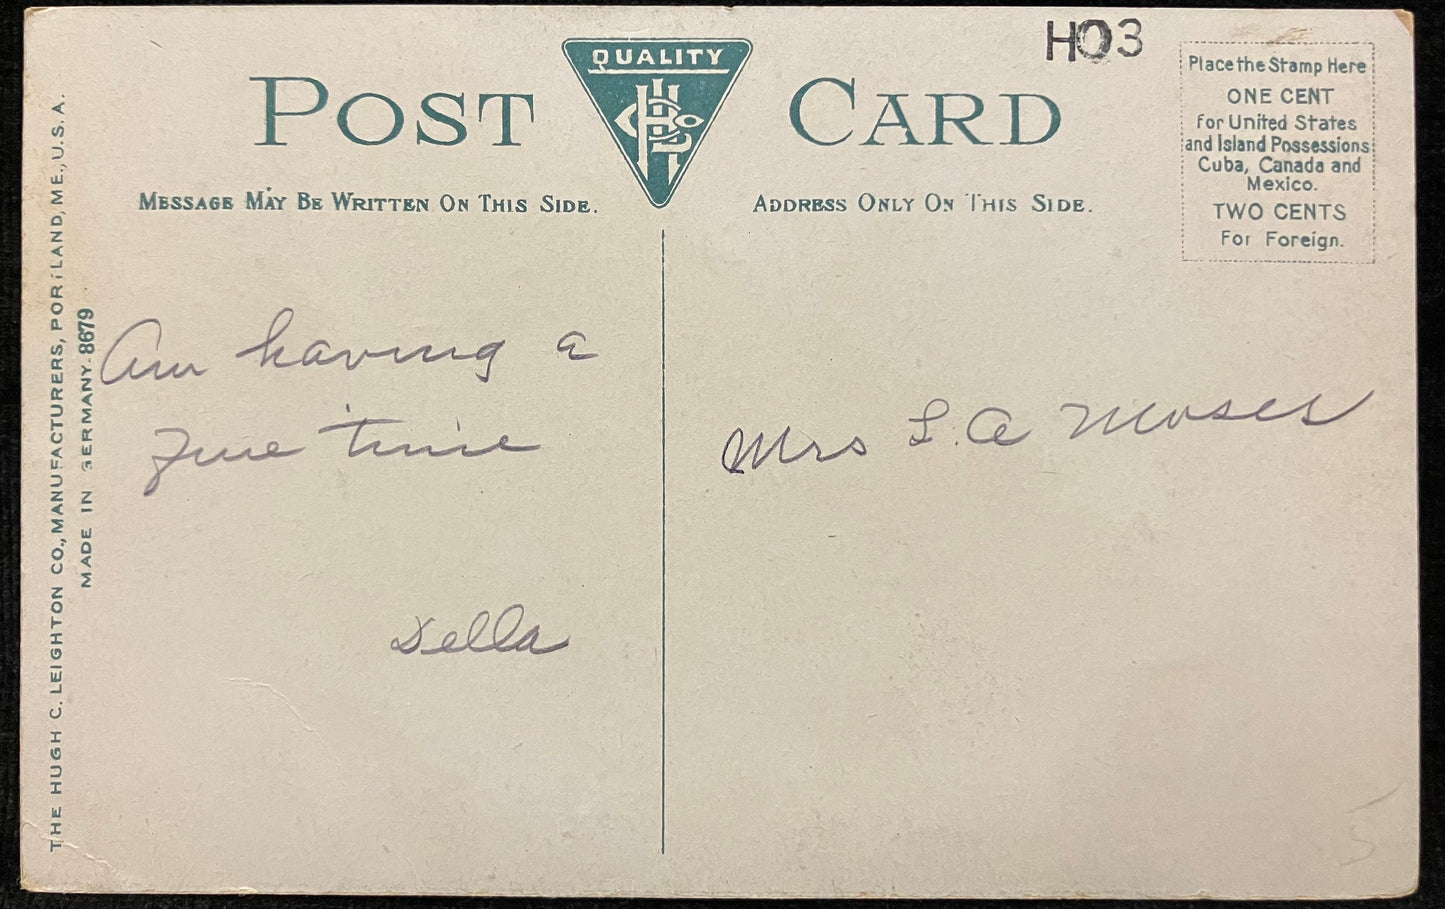 POST CARD
QUALITY
HO3
Place the Stamp Here
ONE CENT
for United States
and Island Possessions
Cuba, Canada and
Mexico.
TWO CENTS
For Foreign.
MESSAGE MAY BE WRITTEN ON THIS SIDE.
ADDRESS ONLY ON THIS SIDE.
THE HUGH C. LEIGHTON CO., MANUFACTURERS, PORTLAND, ME., U.S.A.
MADE IN GERMANY. 8679
Am having a
fine time
Della
Mrs L. A Moses
5